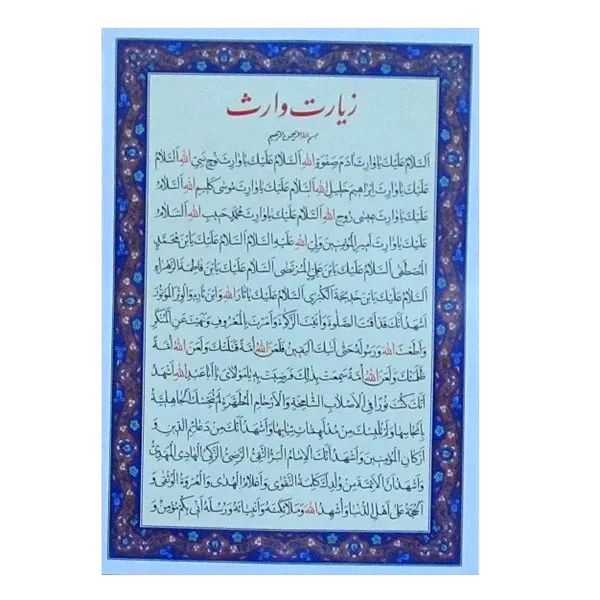 زیارت وارث
بسم الله الرحمن الرحیم
اَلسَّلامُ عَلَیْكَ یا وارِثَ ادَمَ صَِفْوَةِ اللهِ اَلسَّلامُ عَلَیْكَ یا وارِثَ نُوحٍ نَبِیِّ اللهِ اَلسَّلامُ
عَلَیْكَ یا وارِثَ اِبْراهیمَ خَلیلِ اللهِ اَلسَّلامُ عَلَیْكَ یا وارِثَ مُوسی کَلیمِ اللهِ اَلسَّلامُ
عَلَیْكَ یا وارِثَ عیسی رُوحِ اللهِ اَلسَّلامُ عَلَیْكَ یا وارِثَ مُحَمَّدٍ حَبیبِ اللهِ اَلسَّلامُ
عَلَیْكَ یا وارِثَ اَمیرِ الْمُؤْمِنینَ وَلِیِّ اللهِ عَلَیْهِ السَّلامُ اَلسَّلامُ عَلَیْكَ یَابْنَ مُحَمَّدٍ
الْمُصْطَفی اَلسَّلامُ عَلَیْكَ یَابْنَ عَلِیٍّ الْمُرْتَضی اَلسَّلامُ عَلَیْكَ یَابْنَ فاطِمَةَ الزَّهْراءِ
اَلسَّلامُ عَلَیْكَ یَابْنَ خَدیجَةَ الْکُبْری اَلسَّلامُ عَلَیْكَ یا ثارَ اللهِ وَابْنَ ثارِهِ وَالْوِتْرَ الْمَوْتُورَ
اَشْهَدُ اَنَّكَ قَدْ اَقَمْتَ الصَّلوةَ وَ اتَیْتَ الزَّکوةَ وَ اَمَرْتَ بِالْمَعْرُوفِ وَ نَهَیْتَ عَنِ الْمُنْکَرِ
وَ اَطَعْتَ اللهَ وَ رَسُولَهُ حَتّی اَتیكَ الْیَقینُ فَلَعَنَ اللهُ اُمَّةً قَتَلَتْكَ وَ لَعَنَ اللهُ اُمَّةً
ظَلَمَتْكَ وَ لَعَنَ اللهُ اُمَّةً سَمِعَتْ بِذلِكَ فَرَضِیَتْ بِهِ یا مَوْلایَ یا اَبا عَبْدِ اللهِ اَشْهَدُ
اَنَّكَ کُنْتَ نُوراً فِی الْاَصْلابِ الشّامِخَةِ وَ الْاَرْحامِ الْمُطَهَّرَةِ لَمْ تُنَجِّسْكَ الْجاهِلِیَّةُ
بِاَنْجاسِها وَ لَمْ تُلْبِسْكَ مِنْ مُدْلَهِمّاتِ ثِیابِها وَ اَشْهَدُ اَنَّكَ مِنْ دَعائِمِ الدّینِ وَ
اَرْکانِ الْمُؤْمِنینَ وَ اَشْهَدُ اَنَّكَ الْاِمامُ الْبَرُّ التَّقِیُّ الرَّضِیُّ الزَّکِیُّ الْهادِی الْمَهْدِیُّ
وَ اَشْهَدُ اَنَّ الْاَئِمَّةَ مِنْ وُلْدِكَ کَلِمَةُ التَّقْوی وَ اَعْلامُ الْهُدی وَ الْعُرْوَةُ الْوُثْقی وَ
الْحُجَّةُ عَلی اَهْلِ الدُّنْیا وَ اُشْهِدُ اللهَ وَ مَلائِکَتَهُ وَ اَنْبِیائَهُ وَ رُسُلَهُ اَنّی بِکُمْ مُؤْمِنٌ وَ